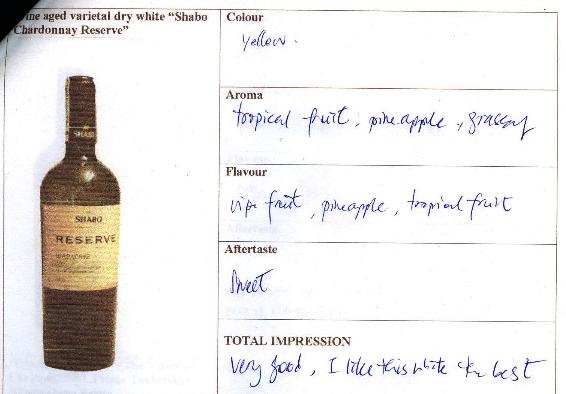 ine aged varietal dry white “Shabo
Chardonnay Reserve”
SHABO
SHABO
RESERVE
Colour
yellow.
Aroma
tropical fruit, pineapple, grassy
Flavour
ripe fruit, pineapple, tropical fruit
Aftertaste
Sweet
TOTAL IMPRESSION
Very good, I like this white the best